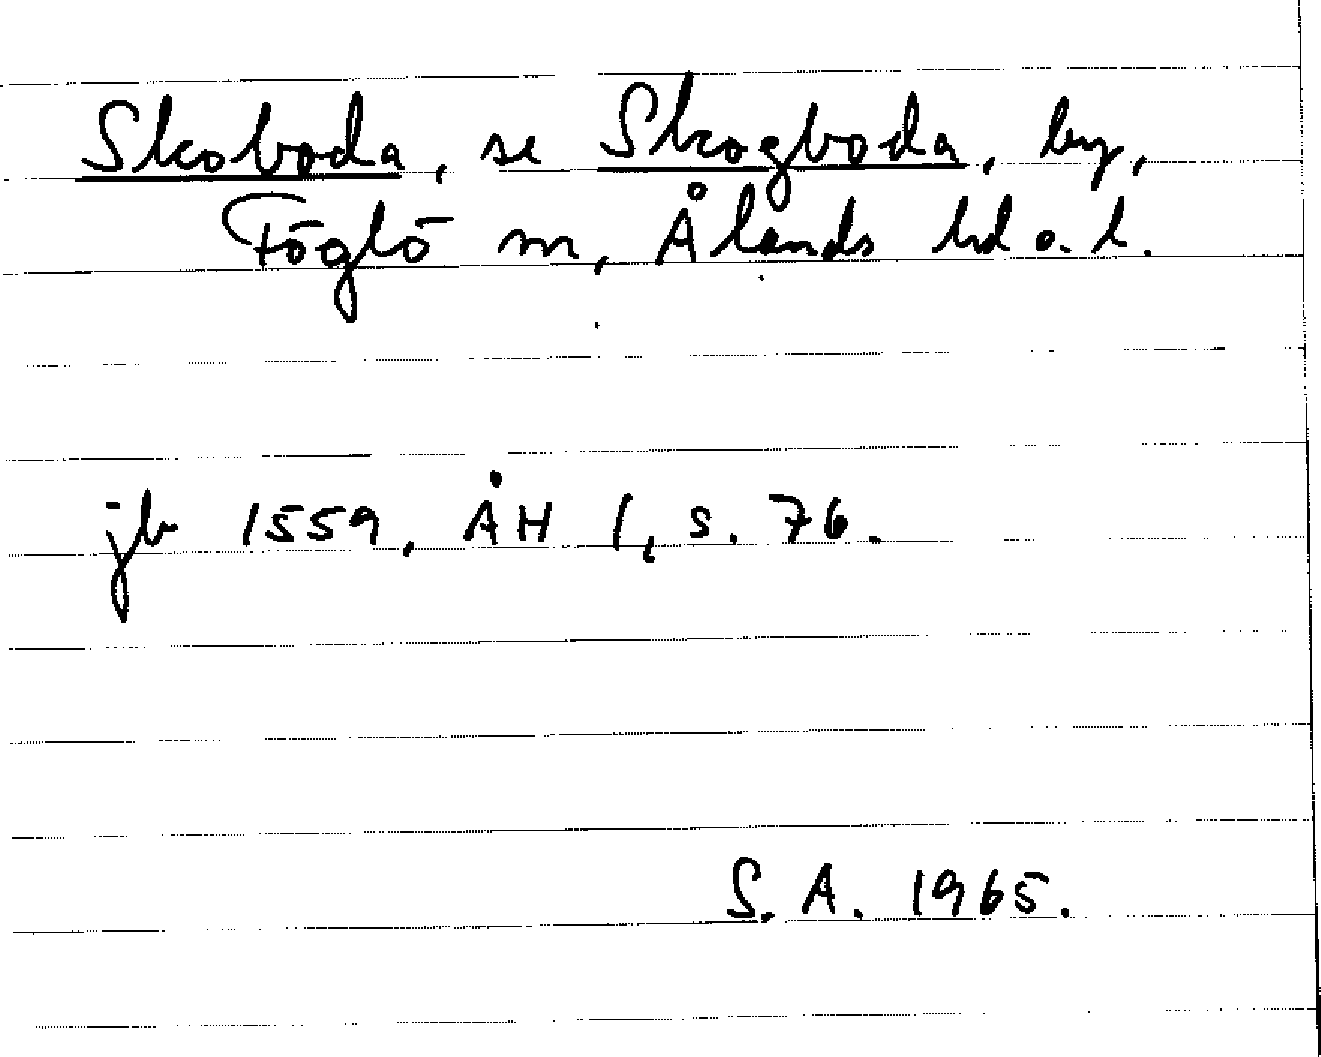 Skoboda, se Skogboda, by,
Föglö sn, Ålands hd o. l.
jb 1559, ÅH I, s. 76.
S. A. 1965.